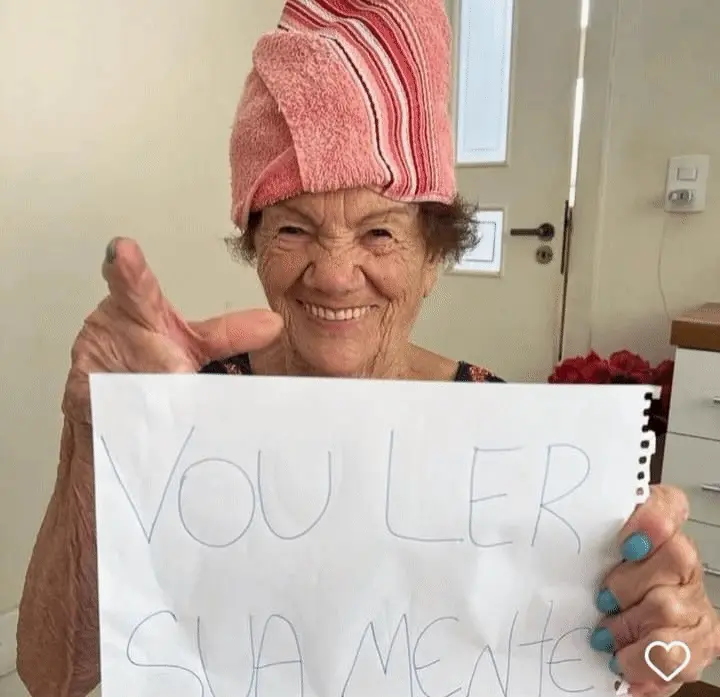 VOU LER
SUA MENTE